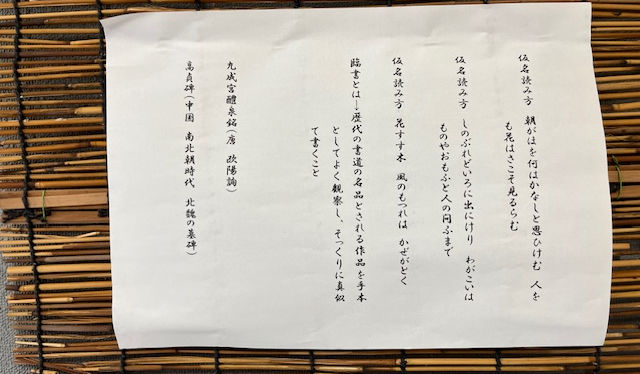 仮名読み方　朝がほを何はかなしと思ひけむ　人を
も花はさこそ見るらむ
仮名読み方　しのぶれどいろに出にけり　わがこいは
ものやおもふと人の問ふまで
仮名読み方　花すすき　風のもつれは　かぜがとく
臨書とは→歴代の書道の名品とされる作品を手本
としてよく観察し、そっくりに真似
て書くこと
九成宮醴泉銘(唐　欧陽詢)
高貞碑(中国　南北朝時代　北魏の墓碑)